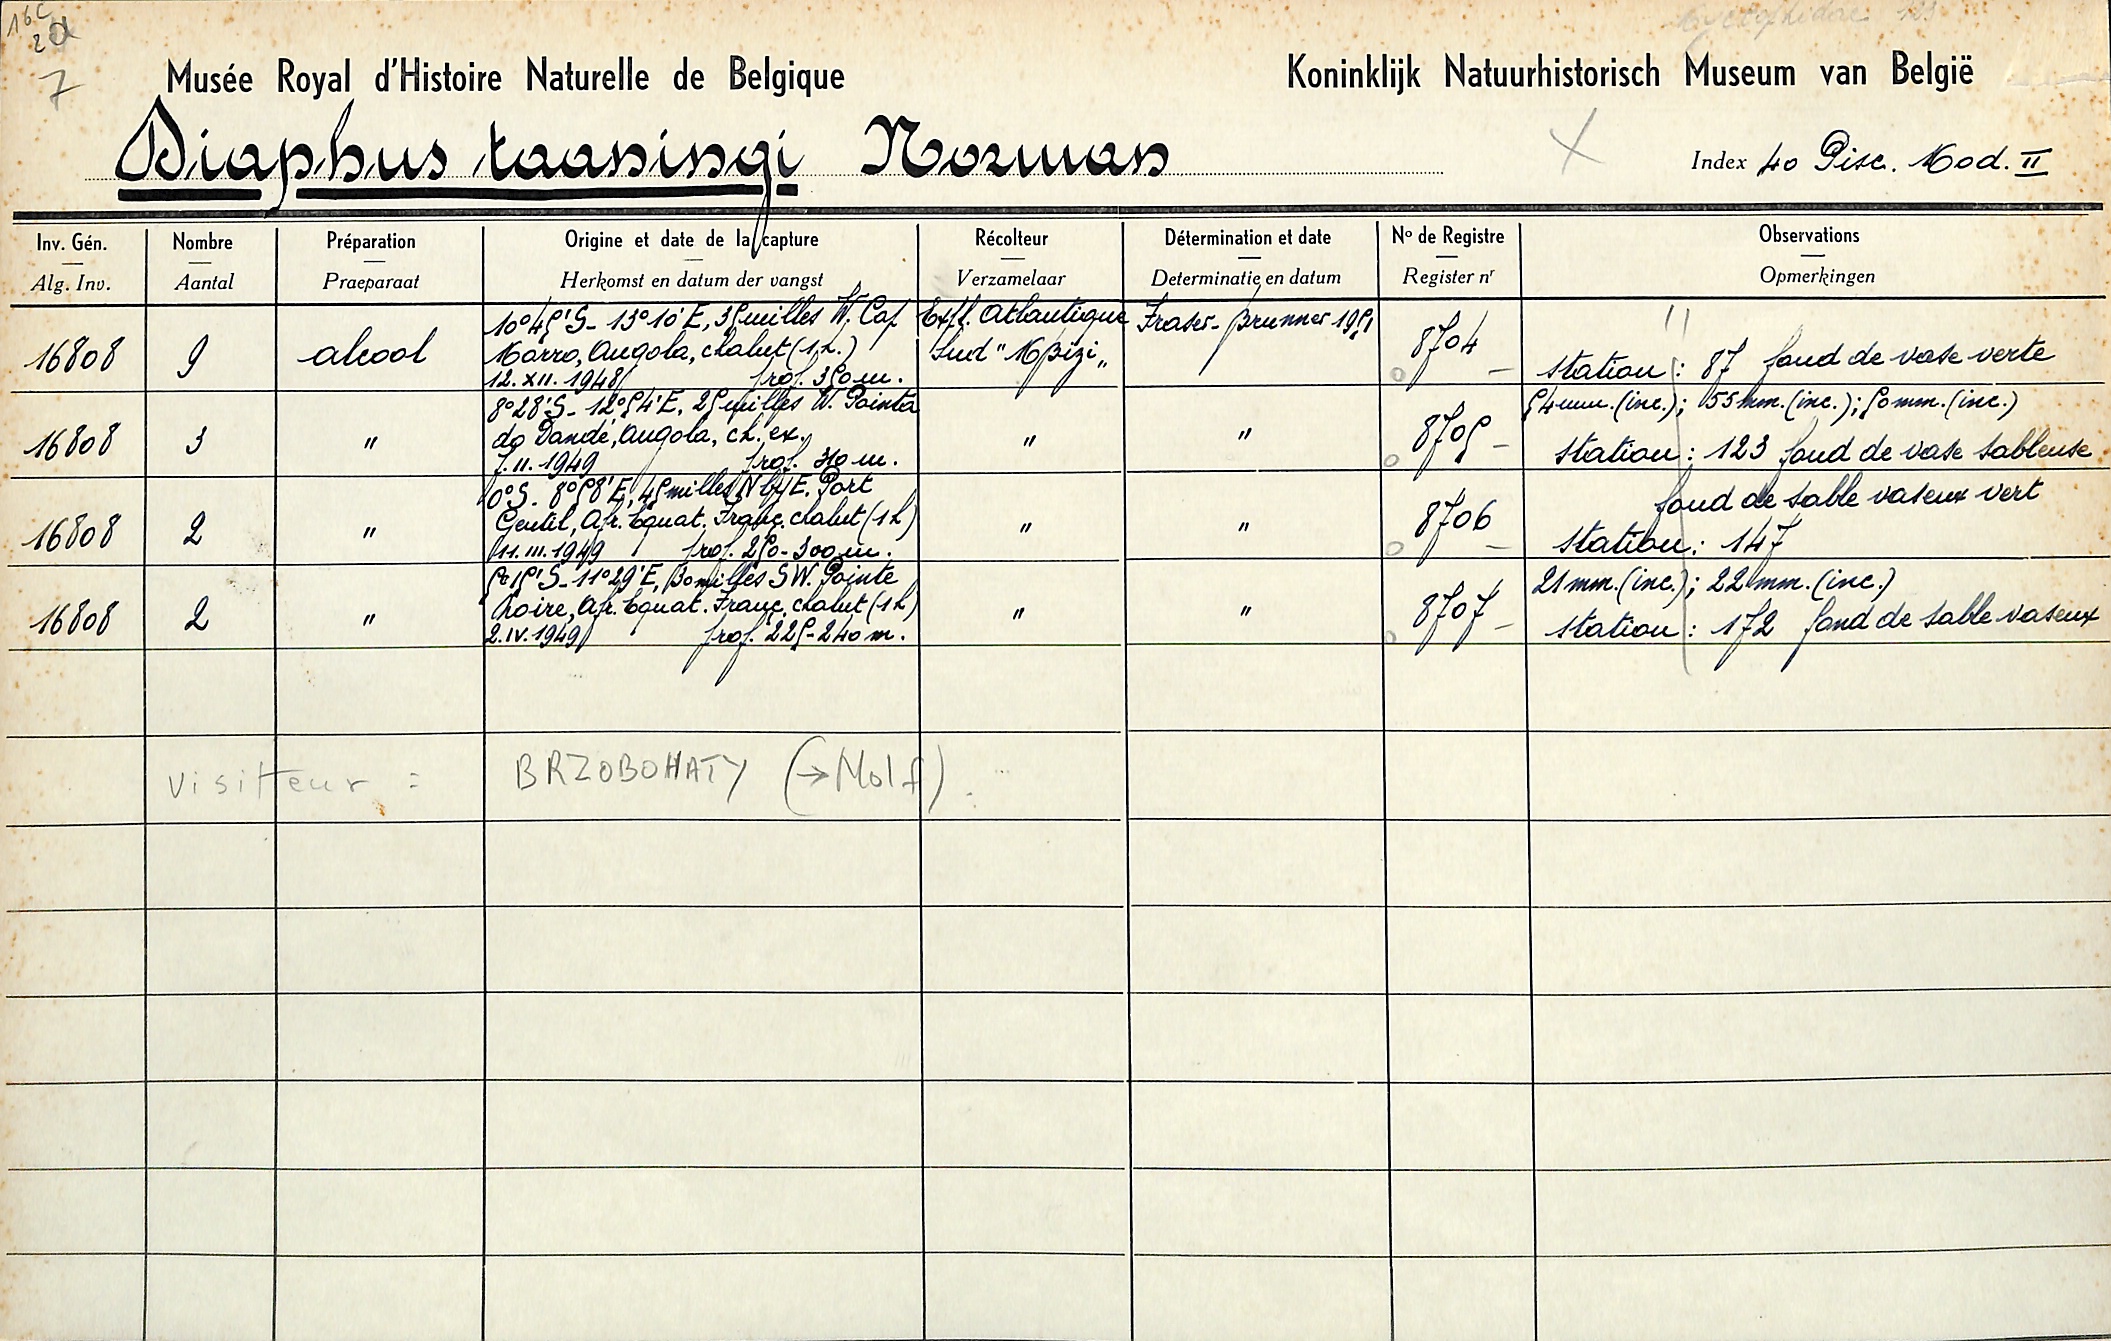 16C
2a
7
Musée Royal d'Histoire Naturelle de Belgique
Koninklijk Natuurhistorisch Museum van België
Diaphus taaningi Norman
X
Index 40 Pisc. Mod. II
Inv. Gén. Nombre Préparation Origine et date de la capture Récolteur Détermination et date Nº de Registre Observations
Alg. Inv. Aantal Praeparaat Herkomst en datum der vangst Verzamelaar Determinatie en datum Register nr Opmerkingen
10°45'S - 13°10'E, 35 milles W. Cap Expl. Atlantique Fraser-Brunner 1951
16808 9 alcool Morro, Angola, chalut (1 h.) Sud "Mbizi" 8704 station : 87 fond de vase verte
12.XII.1948 prof. 350 m.
8°28'S - 12°54'E, 25 milles W. Pointa 54 mm. (inc.); 55 mm. (inc.); 50 mm. (inc.)
16808 3 " do Dandé, Angola, ch. ex. " " 8705 - station : 123 fond de vase sableuse
7.II.1949 prof. 310 m.
0°S - 8°58'E, 45 milles N by E. Port fond de sable vaseux vert
16808 2 " Gentil, Afr. Equat. Franç. chalut (1 h) " " 8706 - station : 147
11.III.1949 prof. 250-300 m.
5°15'S - 11°29'E, 30 milles SW. Pointe 21 mm. (inc.); 22 mm. (inc.)
16808 2 " Noire, Afr. Equat. Franç. chalut (1 h) " " 8707 - station : 172 fond de sable vaseux
2.IV.1949 prof. 225-240 m.
visiteur = BRZOBOHATY (→ Nolf)